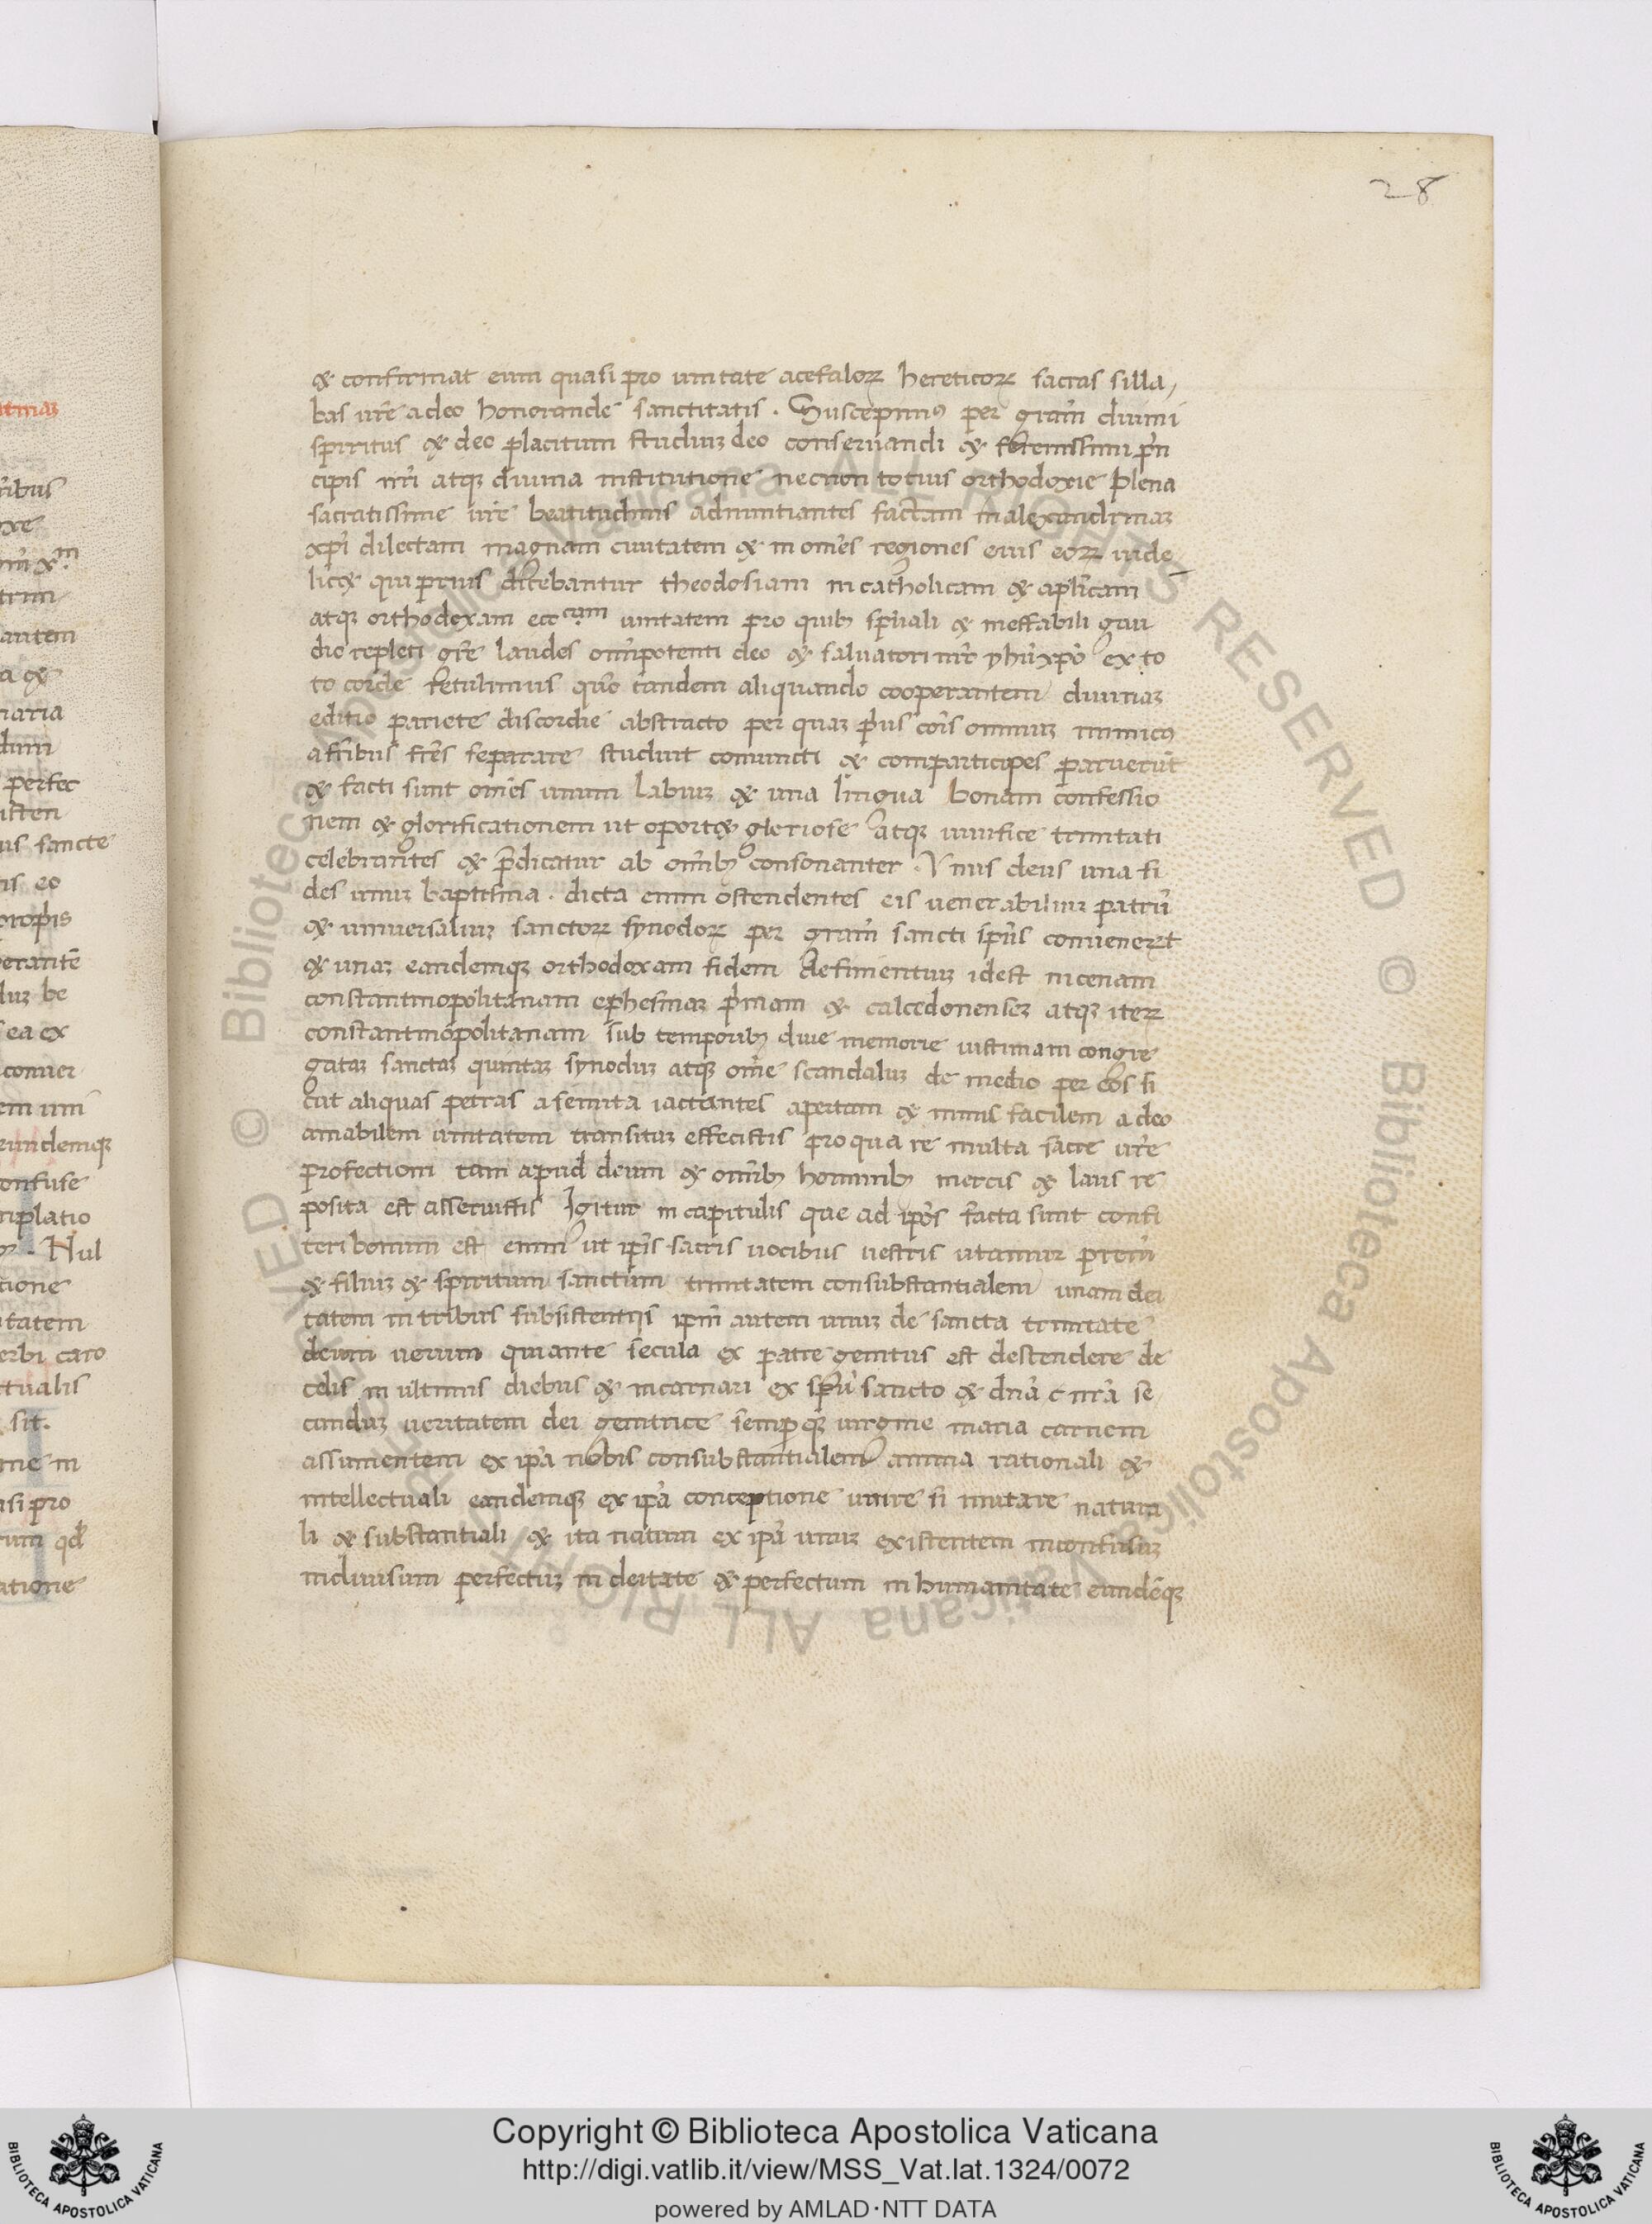 28
& confirmat eum quasi pro unitate acefaloꝝ hereticoꝝ sacras silla,
bas ur̄e a deo honorande sanctitatis . Suscepim⁹ per gram̄ diuini
spiritus & deo placitum studiuꝫ deo conseruandi & serenissimi pn̄
cipis nr̄i atqꝫ diuina institutione necnon totius orthodoxie plena
sacratissime ur̄e beatitudinis adnuntiantes factam in alexandrinaꝫ
xp̄i dilectam magnam ciuitatem & in om̄es regiones eius eoꝝ uide
lic& qui prius dicebantur theodosiani in catholicam & aplīcam
atqꝫ orthodoxam ecc̄cam unitatem pro quibꝫ spūali & ineffabili gau
dio repleti gr̄e laudes om̄ipotenti deo & saluatori nr̄o yhū xp̄o ex to
to corde retulimus quō tandem aliquando cooperantem diuinaꝫ
editio pariete discordie abstracto per quaꝫ p̄us cōis omniuꝫ inimic⁹
a fr̄ibus fr̄es separare studuit coniuncti & comparticipes paruerūt
& facti sunt om̄es unum labiuꝫ & una lingua bonam confessio
nem & glorificationem ut oport& gloriose atqꝫ uiuifice trinitati
celebrantes & p̄dicatur ab om̄ibꝫ consonanter . Vnus deus una fi
des unuꝫ baptisma . dicta enim ostendentes eis uenerabiliuꝫ patrū
& uniuersaliuꝫ sanctoꝝ synodoꝝ per gram̄ sancti sp̄us conueneꝝt
& unaꝫ eandemqꝫ orthodoxam fidem definientiuꝫ idest nicenam
constantinopolitanam ephesinaꝫ p̄mam & calcedonenseꝫ atqꝫ iteꝝ
constantinopolitanam sub temporibꝫ diue memorie iustiniani congre
gataꝫ sanctaꝫ quintaꝫ synoduꝫ atqꝫ om̄e scandaluꝫ de medio per eos si
cut aliquas petras a semita iactantes apertam & nimis facilem a deo
amabilem unitatem transituꝫ effecistis pro qua re multa sacre ur̄e
profectioni tam apud deum & om̄ibꝫ hominibꝫ mercis & laus re
posita est asseruistis Igitur in capitulis que ad ipōs facta sunt confi
teri bonum est enim ut ip̄is sacris uocibus uestris utamur prem̄
& filiuꝫ & spiritum sanctum trinitatem consubstantialem unam dei
tatem in tribus subsistentiis ipm̄ autem unuꝫ de sancta trinitate
deum uerum qui ante secula ex patre genitus est descendere de
celis in ultimis diebus & incarnari ex spū sancto & dn̄a c nr̄a se
cunduꝫ ueritatem dei genitrice semp̄qꝫ uirgine maria carnem
assumentem ex ipā nobis consubstantialem anima rationali &
intellectuali eandemqꝫ ex ipā conceptione unire si mutare natura
li & substantiali & ita natum ex ipā unuꝫ existentem inconfusuꝫ
indiuisum perfectuꝫ in deitate & perfectum in humanitate eundēqꝫ
Copyright © Biblioteca Apostolica Vaticana
http://digi.vatlib.it/view/MSS_Vat.lat.1324/0072
powered by AMLAD·NTT DATA